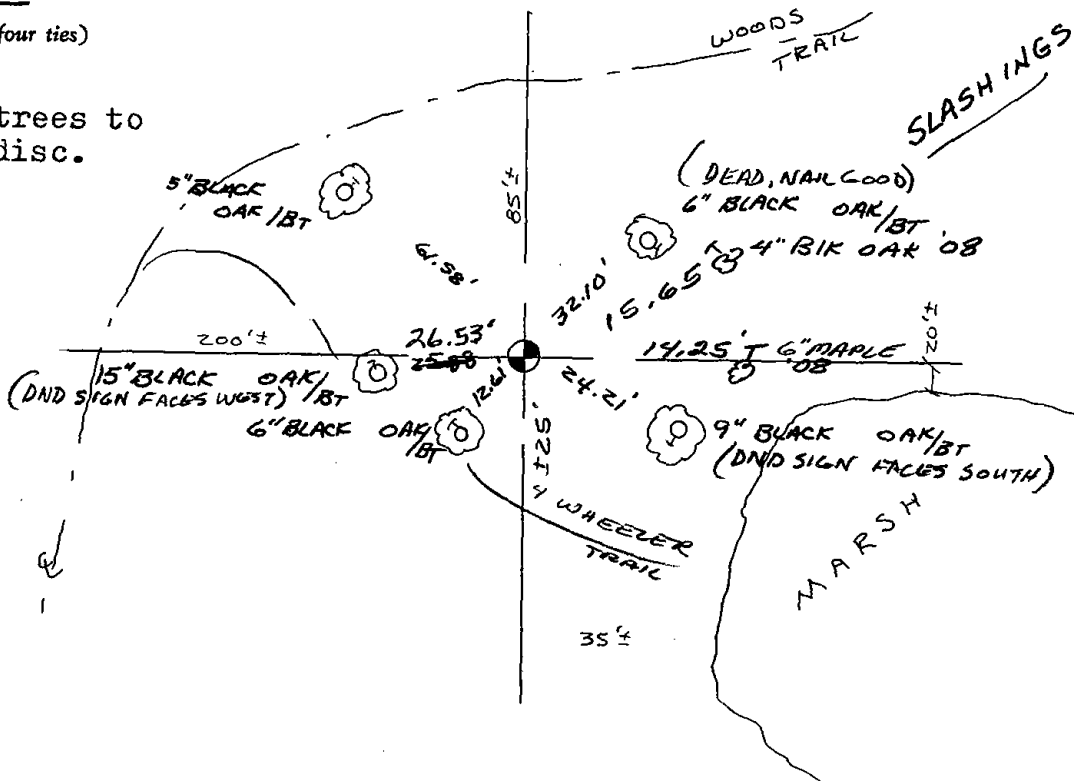 four ties)
trees to
disc.
WOODS
TRAIL
SLASHINGS
5" BLACK
OAK/BT
85'±
(DEAD, NAIL GOOD)
6" BLACK OAK/BT
4" BlK OAK '08
32.10'
15.65
200'±
26.53'
14.25' T 6" MAPLE
'08
20'±
15" BLACK OAK/BT
(DND SIGN FACES WEST)
12.61'
24.21'
6" BLACK OAK/BT
±25'
9" BLACK OAK/BT
(DND SIGN FACES SOUTH)
4 WHEELER
TRAIL
MARSH
35'±